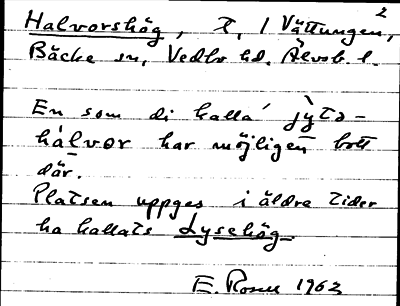 2
Halvorshög, T, i Vättungen,
Bäcke sn, Vedbo hd. Älvsb. l.
En som di kalla' jỳtə-
hálvor har möjligen bott
där.
Platsen uppges i äldre tider
ha kallats Lysehög
E. Rosen 1962